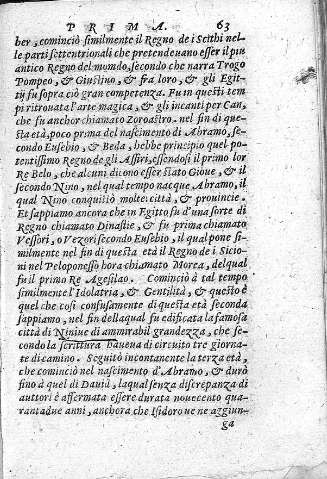 PRIMA. 63
ber, cominciò similmente il Regno de i Scithi nel-
le parti settentrionali che pretendeuano esser il piu
antico Regno del mondo, secondo che narra Trogo
Pompeo, & Giustino, & fra loro, & gli Egit-
tij fu sopra ciò gran competenza. Fu in questi tem
pi ritrouata l'arte magica, & gli incanti per Can,
che fu anchor chiamato Zoroastro. nel fin di que-
sta età, poco prima del nascimento di Abramo, se-
condo Eusebio, & Beda, hebbe principio quel po-
tentissimo Regno de gli Assiri, essendosi il primo lor
Re Belo, che alcuni dicono esser stato Gioue, & il
secondo Nino, nel qual tempo nacque Abramo, il
qual Nino conquistò molte città, & prouincie.
Et sappiamo ancora che in Egitto fu d'una sorte di
Regno chiamato Dinastie, & fu prima chiamato
Vessori, o Vezori secondo Eusebio, il qual pone si-
milmente nel fin di questa età il Regno de i Sicio-
ni nel Peloponesso hora chiamato Morea, del qual
fu il primo Re Agesilao. Cominciò à tal tempo
similmente l'Idolatria, & Gentilità, & questo è
quel che così confusamente di questa età seconda
sappiamo, nel fin della qual fu edificata la famosa
città di Niniue di ammirabil grandezza, che se-
condo la scrittura haueua di circuito tre giorna-
te di camino. Seguitò incontanente la terza età,
che cominciò nel nascimento d'Abramo, & durò
fino à quel di Dauid, la qual senza discrepanza di
auttori è affermata essere durata nouecento qua-
rantadue anni, anchora che Isidoro ue ne aggiun-
ga